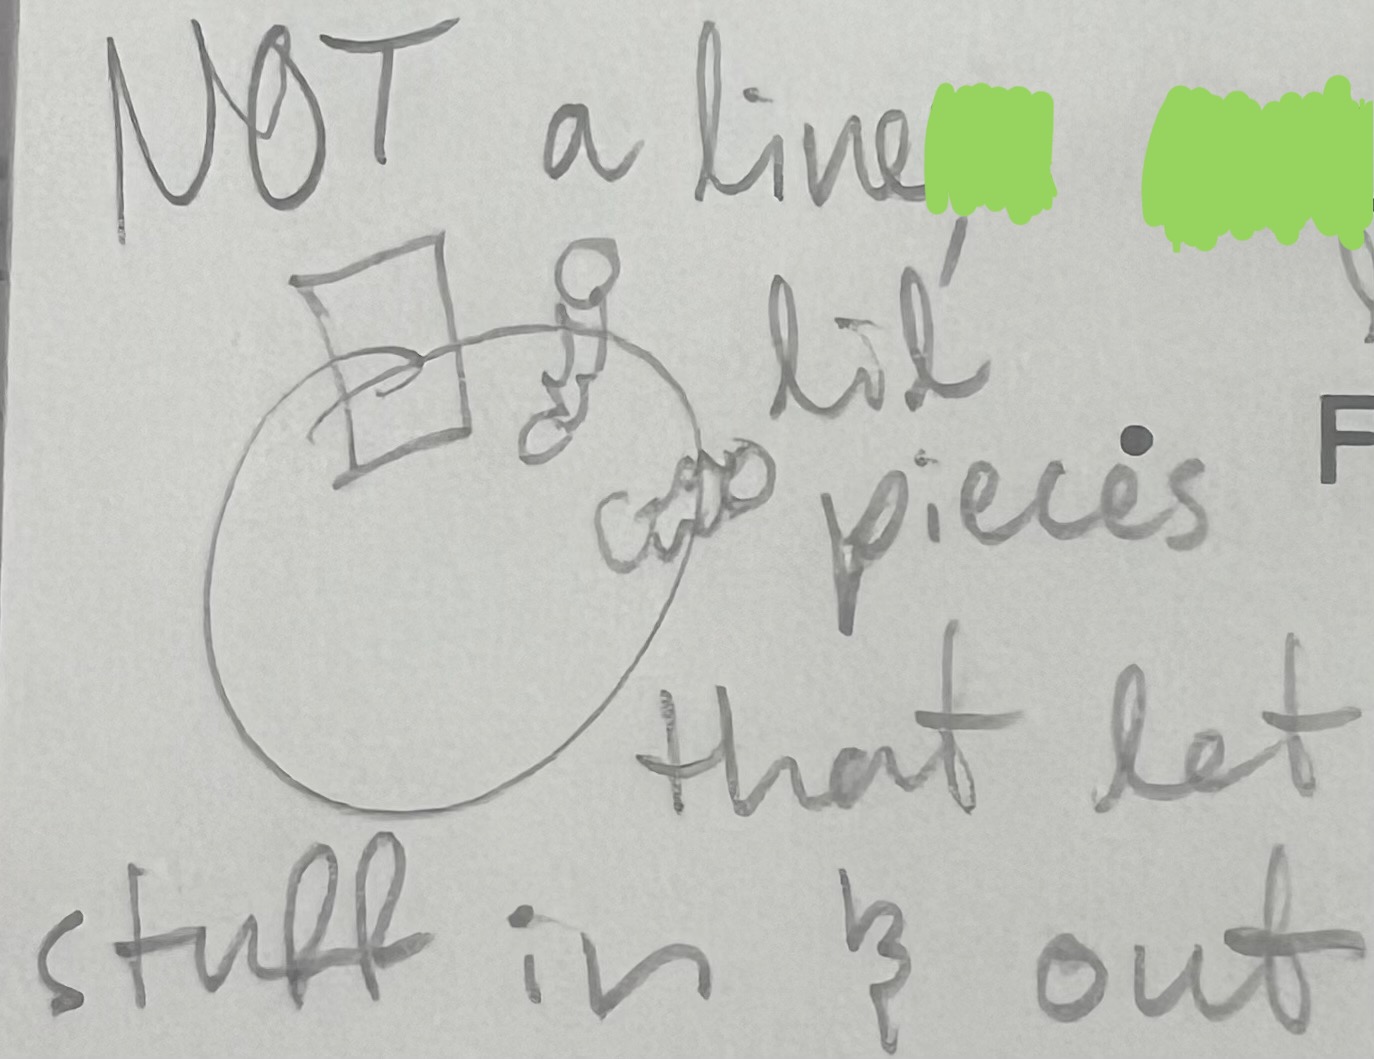 NOT a line,
lil
pieces
F
that let
stuff in & out